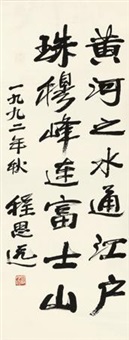 黄河之水通江户
珠穆峰连富士山
一九九二年秋
程思远